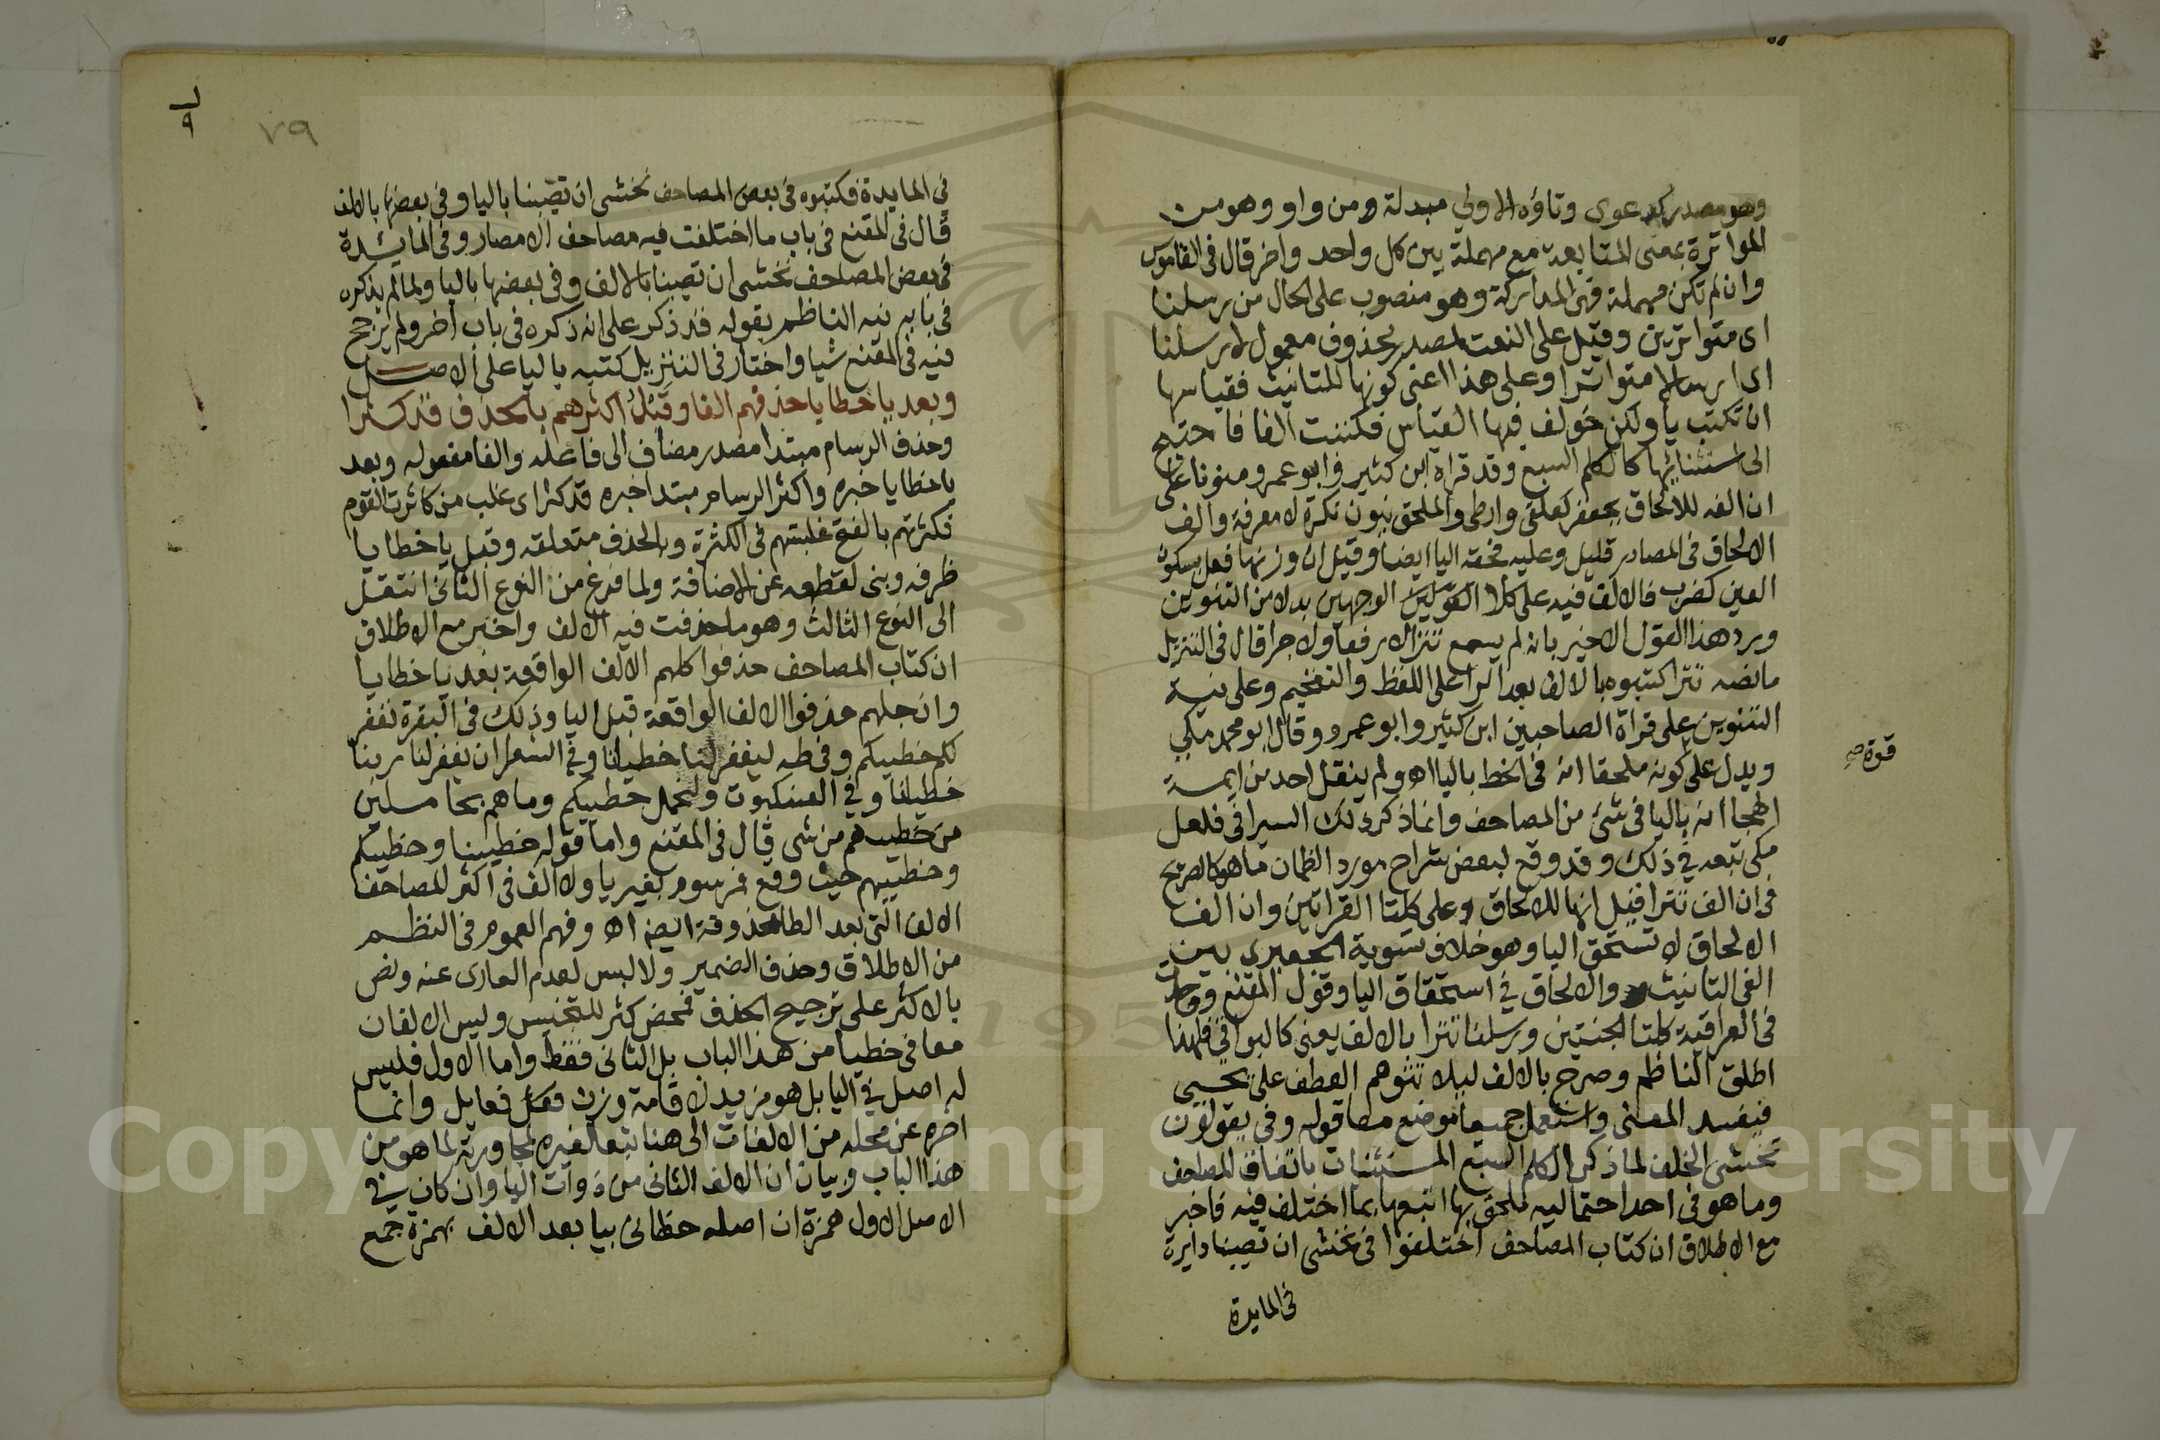 وهو مصدر كدعوى وتاؤه الاولي مبدلة ومن واو وهو من
المواترة بمعنى المتابعة مع مهملة بين كل واحد واخر قال فى القاموس
وان لم تكن مهملة فهى المداركة وهو منصوب على الحال من رسلنا
اى متواترين وقيل على النعت لمصدر محذوف معمول لارسلنا
اى ارسالا متواترا وعلى هذا اعنى كونها للتانيث فقياسها
ان تكتب يا ولكن خولف فيها القياس فكتبت الفا فاحتيج
الى استثنائها كالكلم السبع وقد قراه ابن كثير وابو عمرو منونا على
ان الفه للالحاق بجعفر كعلقى وارطى والملحق بنون نكرة لا معرفة والف
الالحاق فى المصادر قليل وعليه فحقه اليا ايضا وقيل ان وزنها فعل بسكون
العين كضرب فالالف فيه على كلا القولين الوجهين بدلا من التنوين
ويرد هذا القول الاخير بانه لم يسمع تترا الا رفعا ولا جرا قال فى التنزيل
ما نصه تترا كتبوه بالالف بعد الرا على اللفظ والتفخيم وعلى نية
التنوين على قراة الصاحبين ابن كثير وابو عمرو وقال ابو محمد مكي
ويدل على كونه ملحقا انه فى الخط باليا اه ولم ينقل احد من ايمة
الهجا انه باليا فى شئ من المصاحف وانما ذكر ذلك السيرافى فلعل
مكى تبعه في ذلك وقد وقع لبعض شراح مورد الظمان ما هو كالصريح
فى ان الف تترا قيل انها للالحاق وعلى كلتا القراتين وان الف
الالحاق لا تستحق اليا وهو خلاف تسوية الجعبرى بين
الفى التانيث والالحاق في استحقاق اليا وقول المقنع ووجدت
فى العراقية كلتا الجنتين ورسلنا تترا بالالف يعنى كالبواقي فلهذا
اطلق الناظم وصرح بالالف ليلا تتوهم العطف على يحيى
فيفسد المعنى واستعمل جميعا موضع معا قوله وفى يقولون
تخشى الخلف لما ذكر الكلم السبع المستثنات باتفاق المصاحف
وما هو فى احد احتماليه ملحق بها اتبعها بما اختلف فيه فاخبر
مع الاطلاق ان كتاب المصاحف اختلفوا فى نخشى ان تصيبنا دايرة
فى المايدة
قوة صح
٧٩
فى المايدة فكتبوه فى بعض المصاحف نخشى ان تصيبنا باليا وفى بعضها بالالف
قال فى المقنع فى باب ما اختلفت فيه مصاحف الامصار وفى المايدة
فى بعض المصاحف نخشى ان تصيبنا بالالف وفى بعضها باليا ولما لم يذكره
فى بابه نبه الناظم بقوله قد ذكر على انه ذكره فى باب اخر ولم يرجح
فيه فى المقنع شيا واختار فى التنزيل كتبه باليا على الاصل
وبعد يا خطايا حذفهم الفا وقبل اكثرهم بالحذف قد كثرا
وحذف الرسام مبتدا مصدر مضاف الى فاعله والفا مفعوله وبعد
يا خطايا خبره واكثر الرسام مبتدا خبره قد كثر اى غلب من كاثرت القوم
فكثرتهم بالفتح غلبتهم فى الكثرة وبالحذف متعلقه وقبل يا خطايا
ظرفه وبنى لقطعه عن الاضافة ولما فرغ من النوع الثانى انتقل
الى النوع الثالث وهو ما حذفت فيه الالف واخبر مع الاطلاق
ان كتاب المصاحف حذفوا كلهم الالف الواقعة بعد يا خطايا
وان جلهم حذفوا الالف الواقعة قبل اليا وذلك فى البقرة نغفر
لكم خطيكم وفى طه ليغفر لنا خطيانا وفي الشعرا ان يغفر لنا ربنا
خطيانا وفى العنكبوت ولنحمل خطيكم وما هم بحاملين
من خطيهم من شى قال فى المقنع واما قوله خطيينا وخطييكم
وخطييهم حيث وقع فمرسوم بغير يا ولا الف فى اكثر المصاحف
الالف التى بعد الطا محذوفة ايضا اه وفهم العموم فى النظم
من الاطلاق وحذف الضمير ولا لبس لعدم العارى عنه ونص
بالاكثر على ترجيح الحذف فمحض كثر للتجنيس وليس الالفان
معا فى خطيا من هذا الباب بل الثانى فقط واما الاول فليس
له اصل في اليا بل هو مزيد لاقامة وزن فعل فعايل وانما
اخره عن محله من الالفات الى هنا تبعا لغيره لمجاورته لما هو من
هذا الباب وبيان ان الالف الثانى من ذوات اليا وان كان في
الاصل الاول همزة ان اصله خطائ بيا بعد الالف بهمزة جمع
Copyright © King Saud University
195